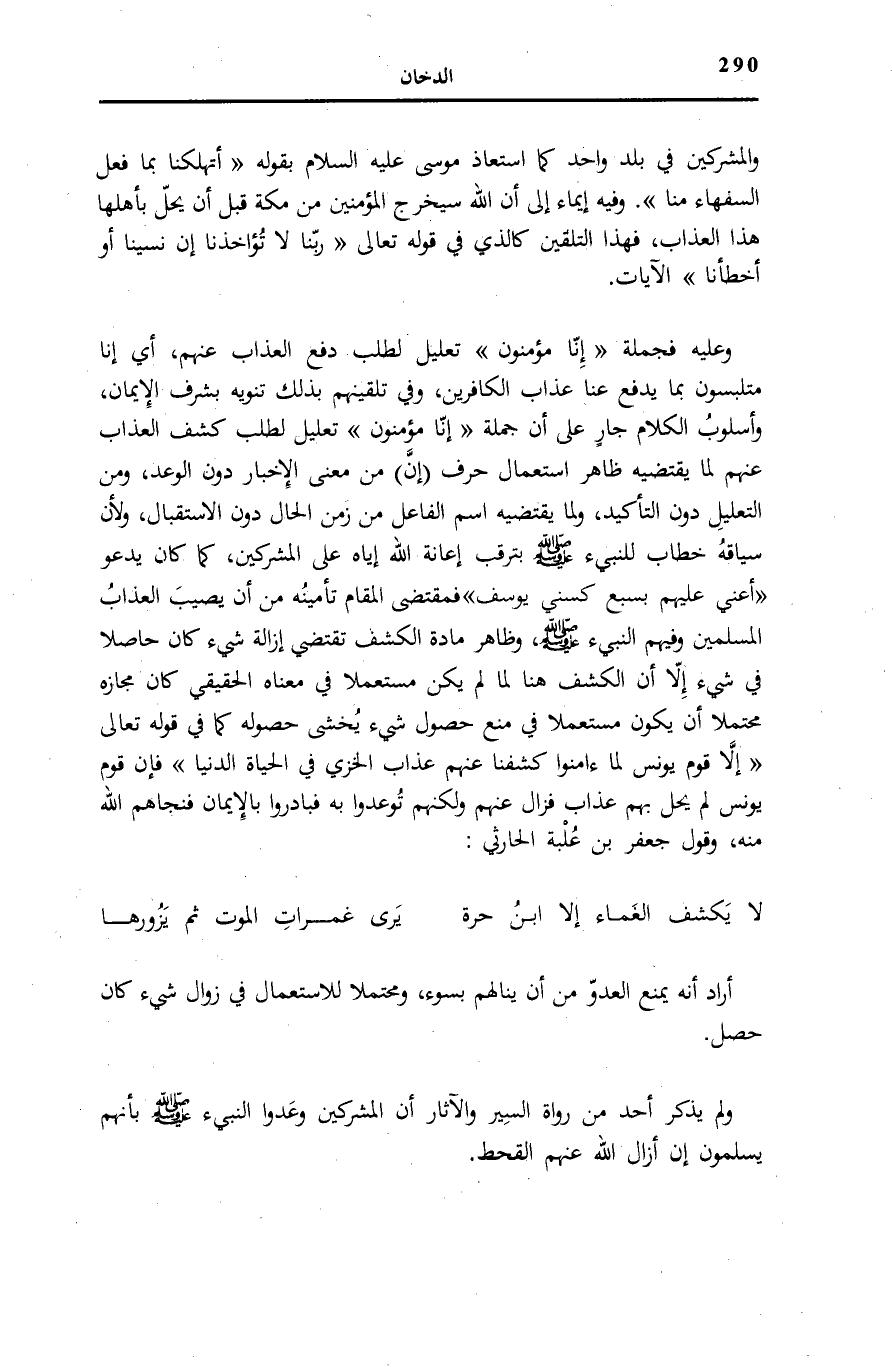 290
الدخان
والمشركين في بلد واحد كما استعاذ موسى عليه السلام بقوله « أتهلكنا بما فعل
السفهاء منا ». وفيه إيماء إلى أن الله سيخرج المؤمنين من مكة قبل أن يحلّ بأهلها
هذا العذاب، فهذا التلقين كالذي في قوله تعالى « ربّنا لا تُؤاخذنا إن نسينا أو
أخطأنا » الآيات.
وعليه فجملة « إِنّا مؤمنون » تعليل لطلب دفع العذاب عنهم، أي إنا
متلبسون بما يدفع عنا عذاب الكافرين، وفي تلقينهم بذلك تنويه بشرف الإِيمان،
وأسلوبُ الكلام جارٍ على أن جملة « إنّا مؤمنون » تعليل لطلب كشف العذاب
عنهم لما يقتضيه ظاهر استعمال حرف (إنَّ) من معنى الإِخبار دون الوعد، ومن
التعليلِ دون التأكيد، ولما يقتضيه اسم الفاعل من زمن الحال دون الاستقبال، ولأن
سياقهُ خطاب للنبيء ﷺ بترقب إعانة الله إياه على المشركين، كما كان يدعو
«أعني عليهم بسبع كسني يوسف»فمقتضى المقام تأمينُه من أن يصيبَ العذابُ
المسلمين وفيهم النبيء ﷺ، وظاهر مادة الكشف تقتضي إزالة شيء كان حاصلا
في شيء إِلّا أن الكشف هنا لما لم يكن مستعملا في معناه الحقيقي كان مجازه
محتملا أن يكون مستعملا في منع حصول شيء يُخشى حصوله كما في قوله تعالى
« إلَّا قوم يونس لما ءامنوا كشفنا عنهم عذاب الخزي في الحياة الدنيا » فإن قوم
يونس لم يحل بهم عذاب فزال عنهم ولكنهم تُوعدوا به فبادروا بالإِيمان فنجاهم الله
منه، وقول جعفر بن عُلْبة الحارثي :
لا يَكشف الغَماء إلا ابنُ حرة يَرى غمراتِ الموت ثم يَزُورها
أراد أنه يمنع العدوّ من أن ينالهم بسوء، ومحتملا للاستعمال في زوال شيء كان
حصل.
ولم يذكر أحد من رواة السِير والآثار أن المشركين وعَدوا النبيء ﷺ بأنهم
يسلمون إن أزال الله عنهم القحط.